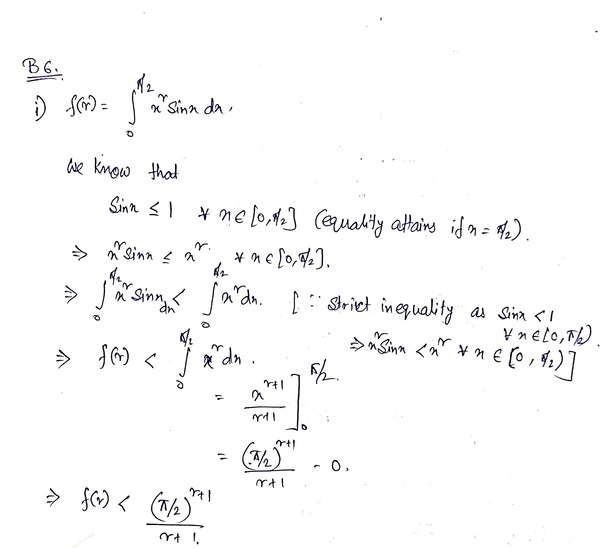 B6.
i) f(r) = ∫₀^{π/2} x^r sinx dx.
we know that
sinx ≤ 1 ∀ x ∈ [0, π/2] (equality attains if x = π/2).
⇒ x^r sinx ≤ x^r. ∀ x ∈ [0, π/2].
⇒ ∫₀^{π/2} x^r sinx dx < ∫₀^{π/2} x^r dx. [∵ strict inequality as sinx < 1
∀ x ∈ [0, π/2).
⇒ x^r sinx < x^r ∀ x ∈ [0, π/2)]
⇒ f(r) < ∫₀^{π/2} x^r dx.
= x^{r+1}/(r+1) ]₀^{π/2}.
= (π/2)^{r+1}/(r+1) - 0.
⇒ f(r) < (π/2)^{r+1}/(r+1).